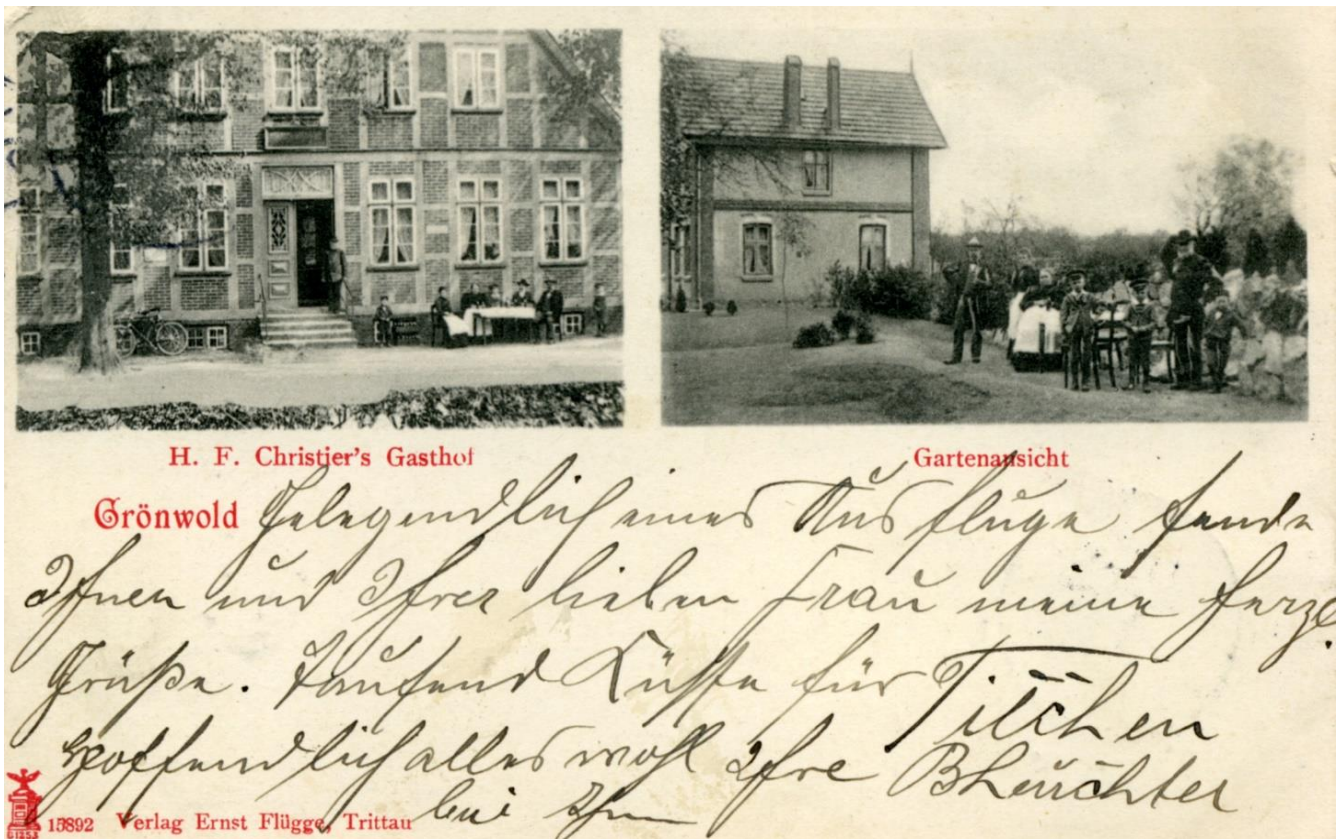 H. F. Christier's Gasthof
Gartenansicht
Grönwold
Gelegendlich eines Ausfluge sende
Ihnen und Ihrer lieben Frau meine herzl.
Grüße. Tausend Küsse für Tilchen
Hoffendlich alles wohl Ihre
bei Ihn
15892 Verlag Ernst Flügge, Trittau